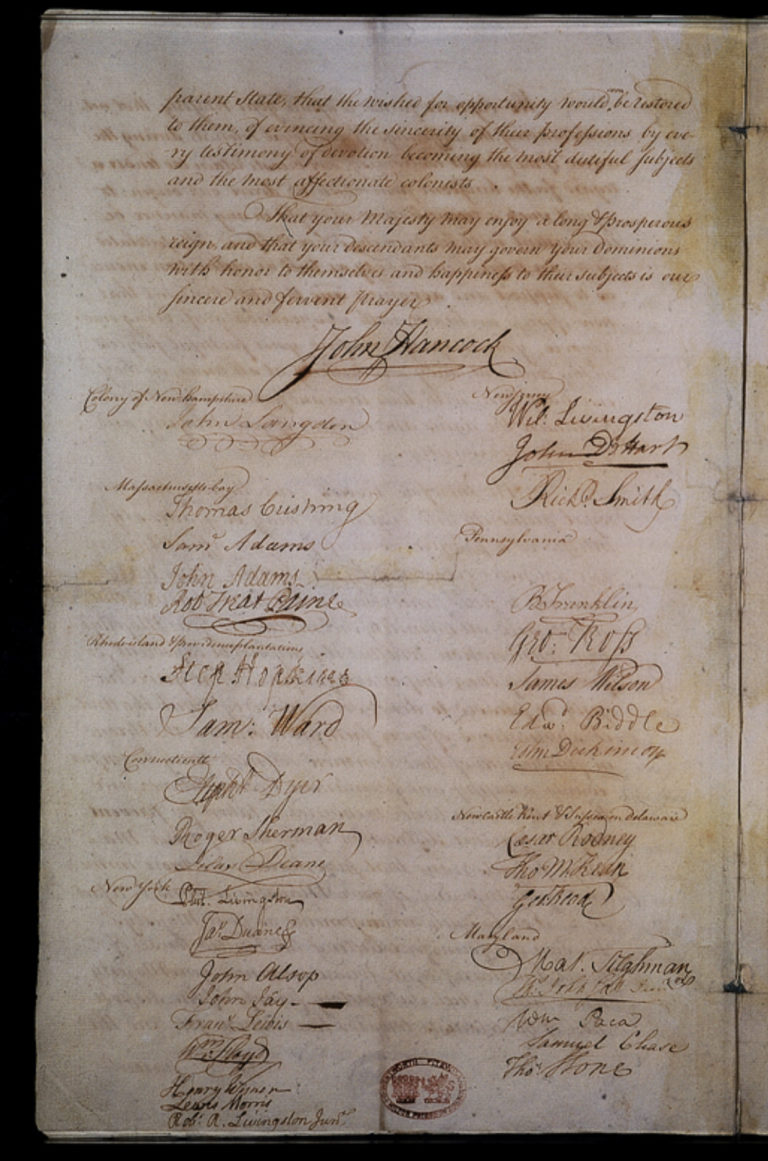 parent State, that the wished for opportunity would soon be restored
to them, of evincing the sincerity of their professions by eve-
ry testimony of devotion becoming the most dutiful subjects
and the most affectionate colonists.
That your Majesty may enjoy a long & prosperous
reign, and that your descendants may govern your Dominions
with honor to themselves and happiness to their subjects is our
sincere and fervent prayer
John Hancock
Colony of New Hampshire
John Langdon
Massachusetts-bay
Thomas Cushing
Samˡ Adams
John Adams
Robᵗ Treat Paine
Rhode island & providence plantations
Step Hopkins
Samˡ: Ward
Connecticutt
Eliphᵗ Dyer
Roger Sherman
Silas Deane
New York
Phil. Livingston
Jaˢ Duane
John Alsop
John Jay
Franˢ Lewis
Wᵐ: Floyd
Henry Wisner
Lewis Morris
Robᵗ. R. Livingston Junʳ
New Jersey
Wil: Livingston
John De Hart
Richᵈ. Smith
Pennsylvania
B Franklin
Geo: Ross
James Wilson
Edwᵈ. Biddle
John Dickinson
Newcastle Kent & Sussex on Delaware
Cæsar Rodney
Tho M:Kean
Geo: Read
Maryland
Mat. Tilghman
Wᵐ Paca
Samuel Chase
Thoˢ Stone